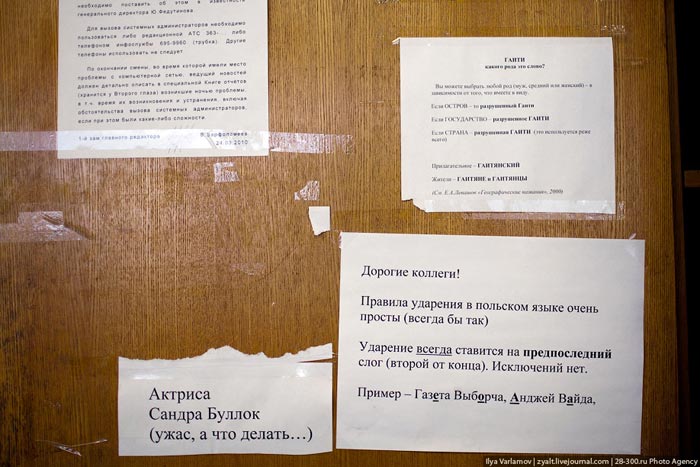 необходимо поставить об этом в известность
генерального директора Ю.Федутинова.
Для вызова системных администраторов необходимо
пользоваться либо редакционной АТС 363-... либо
телефоном инфослужбы 695-9960 (трубка). Другие
телефоны использовать не следует.
По окончании смены, во время которой имели место
проблемы с компьютерной сетью, ведущий новостей
должен детально описать в специальной Книге отчётов
(хранится у Второго глаза) возникшие ночью проблемы,
в т.ч. время их возникновения и устранения, включая
обстоятельства вызова системных администраторов,
если при этом были какие-либо сложности.
1-й зам.главного редактора
В.Варфоломеев
24.05.2010
ГАИТИ
какого рода это слово?
Вы можете выбрать любой род (муж, средний или женский) – в
зависимости от того, что имеете в виду.
Если ОСТРОВ – то разрушенный Гаити
Если ГОСУДАРСТВО – разрушенное ГАИТИ
Если СТРАНА – разрушенная ГАИТИ (это используется реже
всего)
Прилагательное – ГАИТЯНСКИЙ
Жители – ГАИТЯНЕ и ГАИТЯНЦЫ
(См. Е.А.Левашов «Географические названия», 2000)
Дорогие коллеги!
Правила ударения в польском языке очень
просты (всегда бы так)
Ударение всегда ставится на предпоследний
слог (второй от конца). Исключений нет.
Пример – Газета Выборча, Анджей Вайда,
Актриса
Сандра Буллок
(ужас, а что делать…)
Ilya Varlamov | zyalt.livejournal.com | 28-300.ru Photo Agency